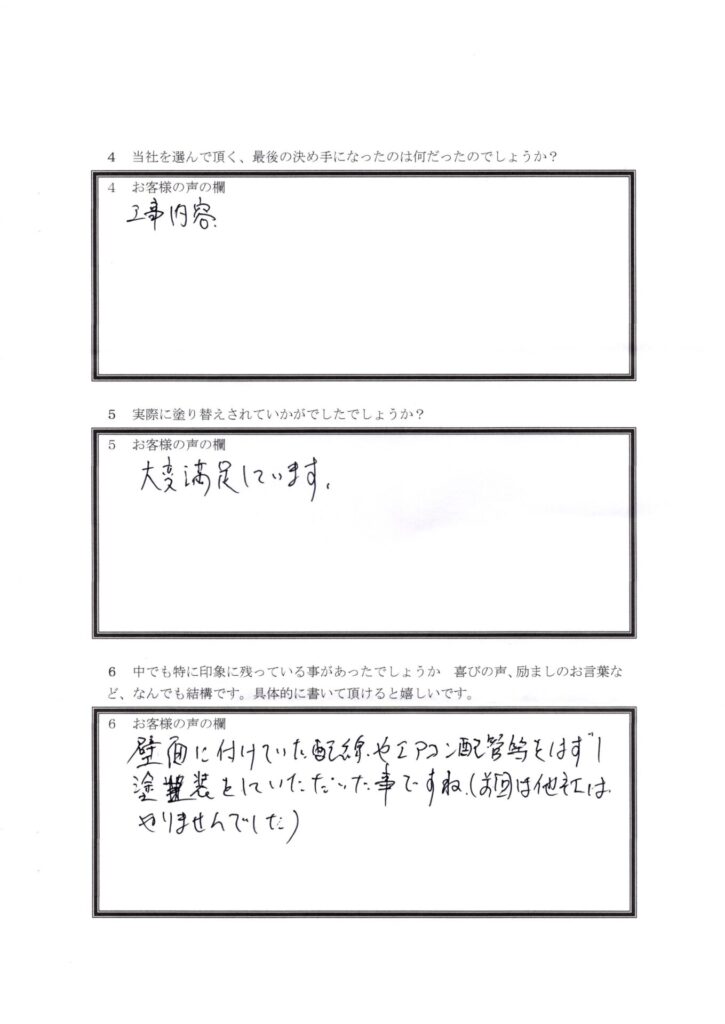 4 当社を選んで頂く、最後の決め手になったのは何だったのでしょうか？
4 お客様の声の欄
工事内容.
5 実際に塗り替えされていかがでしたでしょうか？
5 お客様の声の欄
大変満足しています.
6 中でも特に印象に残っている事があったでしょうか 喜びの声、励ましのお言葉な
ど、なんでも結構です。具体的に書いて頂けると嬉しいです。
6 お客様の声の欄
壁面に付けていた配線やエアコン配管等をはずし
塗装をしていただいた事ですね.(前回は他社は
やりませんでした)